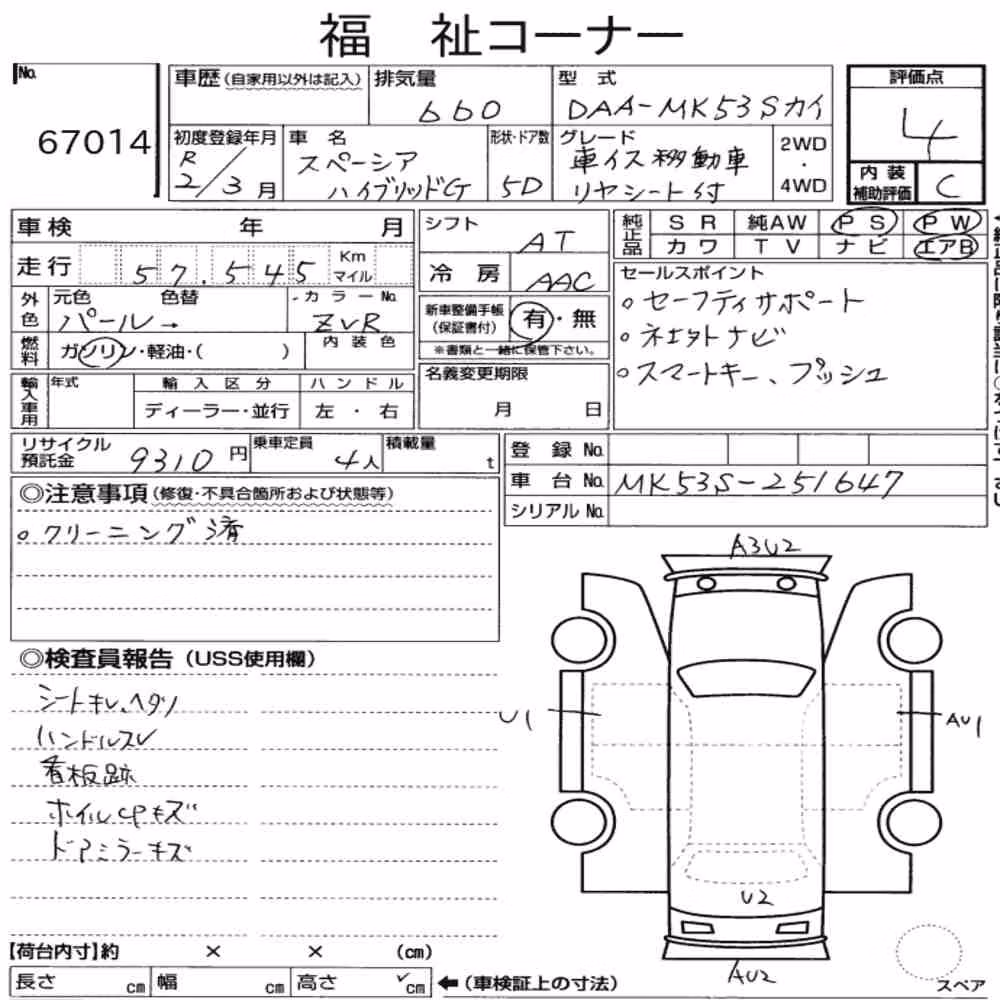 福 祉コーナー
No. 67014
車歴(自家用以外は記入)
排気量 660
型 式 DAA-MK53Sカイ
初度登録年月 R 2/3月
車 名 スペーシア ハイブリッドG
形状・ドア数 5D
グレード 車イス移動車 リヤシート付
2WD・4WD
評価点 4
内装補助評価 C
車検 年 月
走行 57.545 Km マイル
外色 元色 パール→ 色替
カラーNo. ZVR
燃料 ガソリン・軽油・( )
内装色
輸入車用 年式 輸入区分 ディーラー・並行
ハンドル 左・右
シフト AT
冷 房 AAC
新車整備手帳(保証書付) 有・無
※書類と一緒に保管下さい。
名義変更期限 月 日
純正品 SR 純AW PS PW
カワ TV ナビ エアB
セールスポイント
○セーフティサポート
○ネエタトナビ
○スマートキー、プッシュ
リサイクル預託金 9310円
乗車定員 4人
積載量 t
登 録 No.
車 台 No. MK53S-251647
シリアル No.
◎注意事項(修復・不具合箇所および状態等)
○クリーニング済
◎検査員報告(USS使用欄)
シートキレ、ヘタリ
ハンドルスレ
看板跡
ホイルCPキズ
ドアミラーキズ
A3U2
U1
AU1
U2
AU2
スペア
【荷台内寸】約 × × (cm)
長さ cm 幅 cm 高さ cm
←(車検証上の寸法)